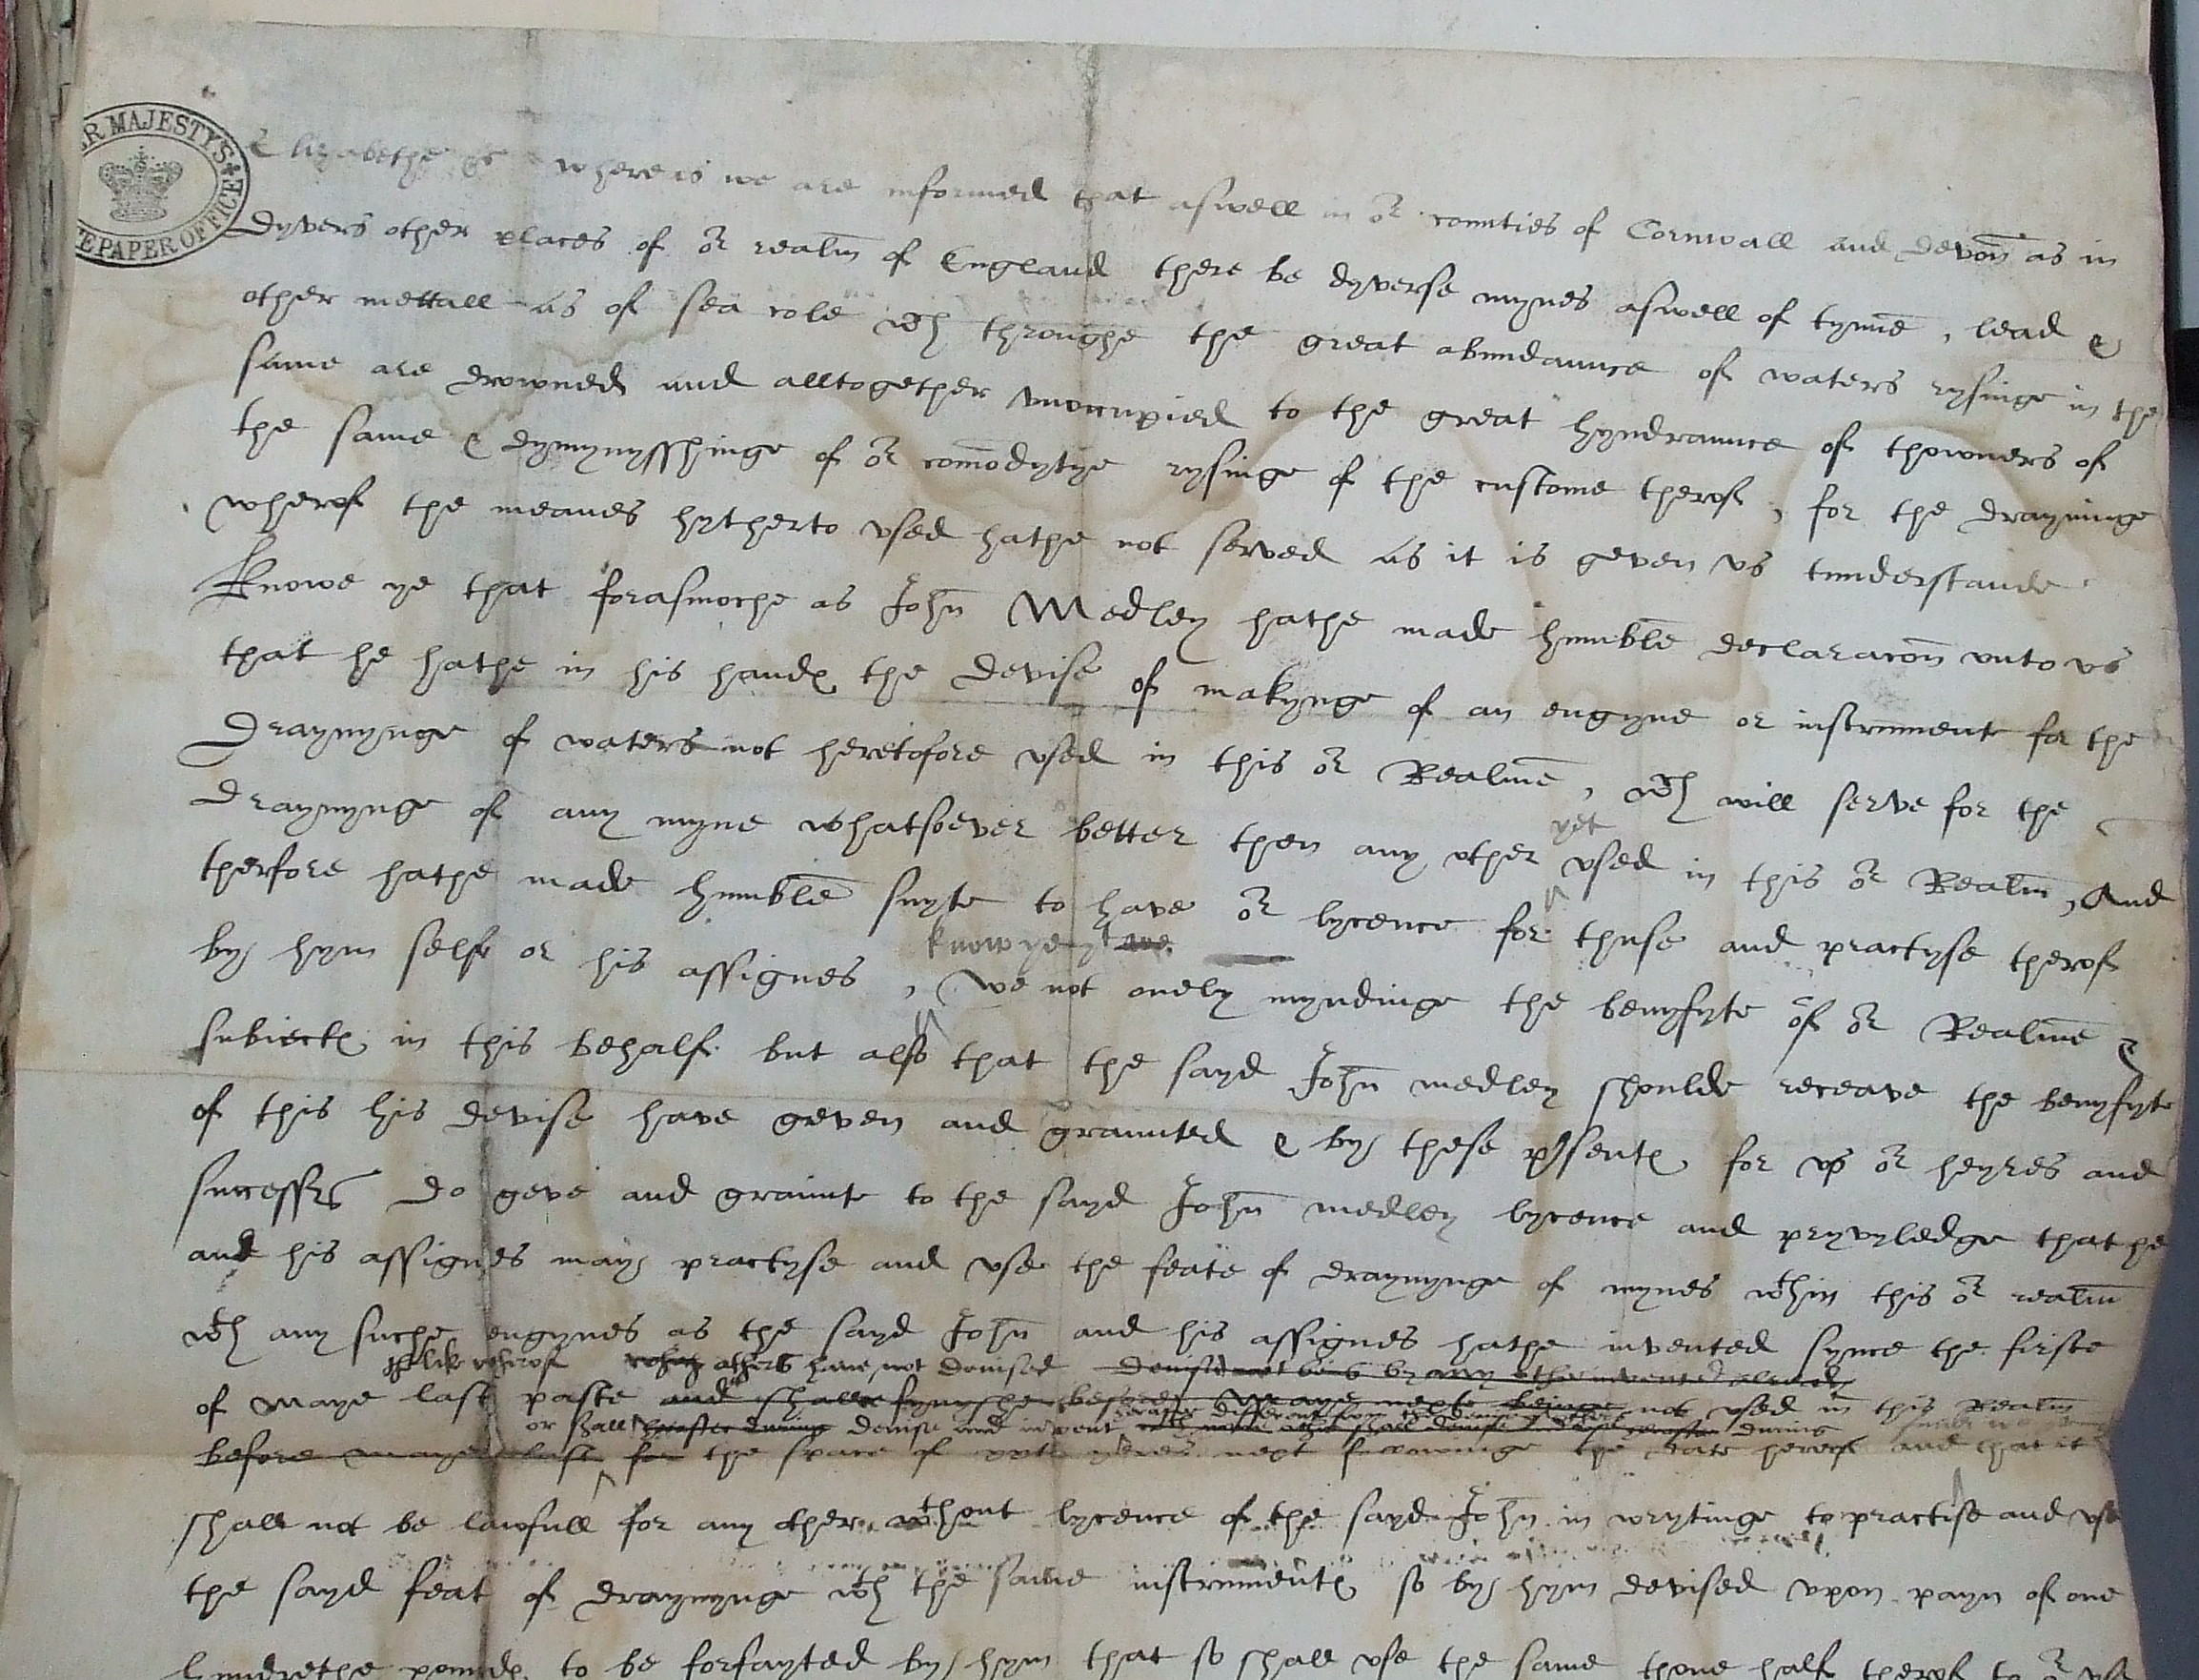 HER MAJESTY'S
STATE PAPER OFFICE
Elizabethe &c whereis we are informed that aswell in or counties of Cornwall and Devon as in
dyvers other places of or realm of England there be dyverse mynes aswell of tynne, lead &
other mettall as of sea cole wch throughe the great abundaunce of waters rysinge in the
same are drowned and alltogether unoccupied to the great hyndraunce of thowners of
the same & dymynysshinge of or comodytye rysinge of the custome therof, for the drayninge
wherof the meanes hytherto used hathe not served as it is geven us tunderstande
Knowe ye that forasmoche as John Medley hathe made humble declaracon unto us
that he hathe in his handes the devise of makynge of an engyne or instrument for the
draynynge of waters not heretofore used in this or Realme, wch will serve for the
draynynge of any myne whatsoever better then any other yet used in this or Realm, And
therfore hathe made humble suyte to have or lycence for thuse and practyse therof
by hym self or his assignes, know ye yt we not onely myndinge the benyfyte of or Realme &
subiectes in this behalf but also that the sayd John medley shoulde receave the benyfyte
of this his devise have geven and graunted & by these psentes for us or heyres and
successrs do geve and graunte to the sayd John medley lycence and pryvyledge that he
and his assignes may practyse and use the feate of draynynge of mynes wthin this or realm
wch any suche engynes as the sayd John and his assignes hathe invented synce the firste
like wherof others have not devised devised not being by any other invented alredy
of Maye last paste and shall fynyshe before Maye next beinge not used in this Realm
or shall herafter during devise and invent during
before maye last for the space of yeres next followinge the date herof and that it
shall not be lawfull for any other wthout lycence of the sayd John in wrytinge to practise and use
the sayd feat of draynynge wch the same instrumentes so by hym devised upon payn of one
hundrethe poundes to be forfayted by hym that so shall use the same thone half therof to or use